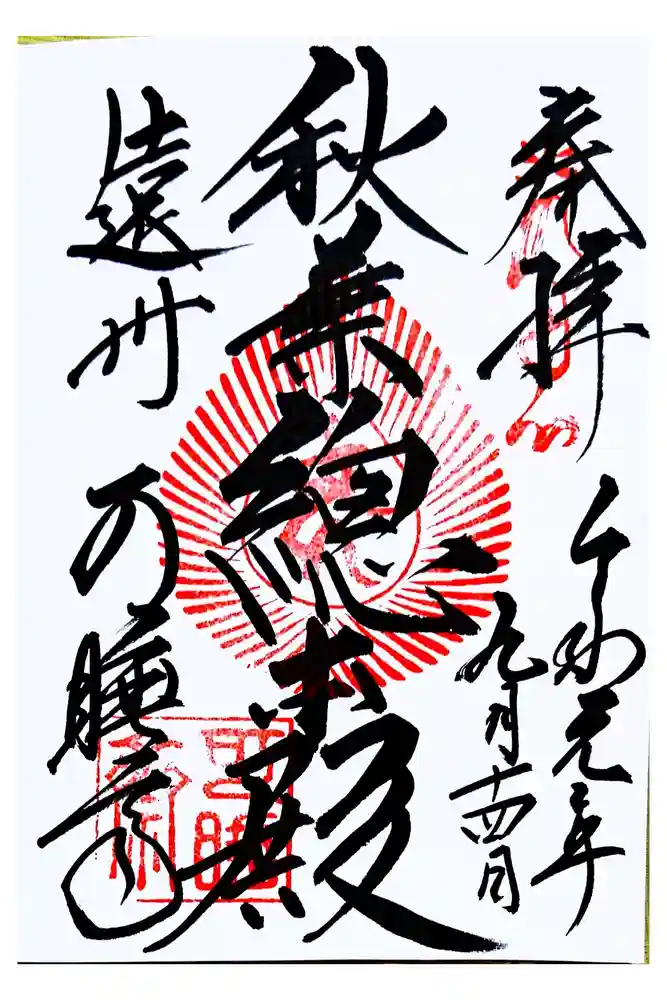 奉拝
令和元年
九月十四日
秋葉總本殿
遠州 可睡齋
可睡
齋印